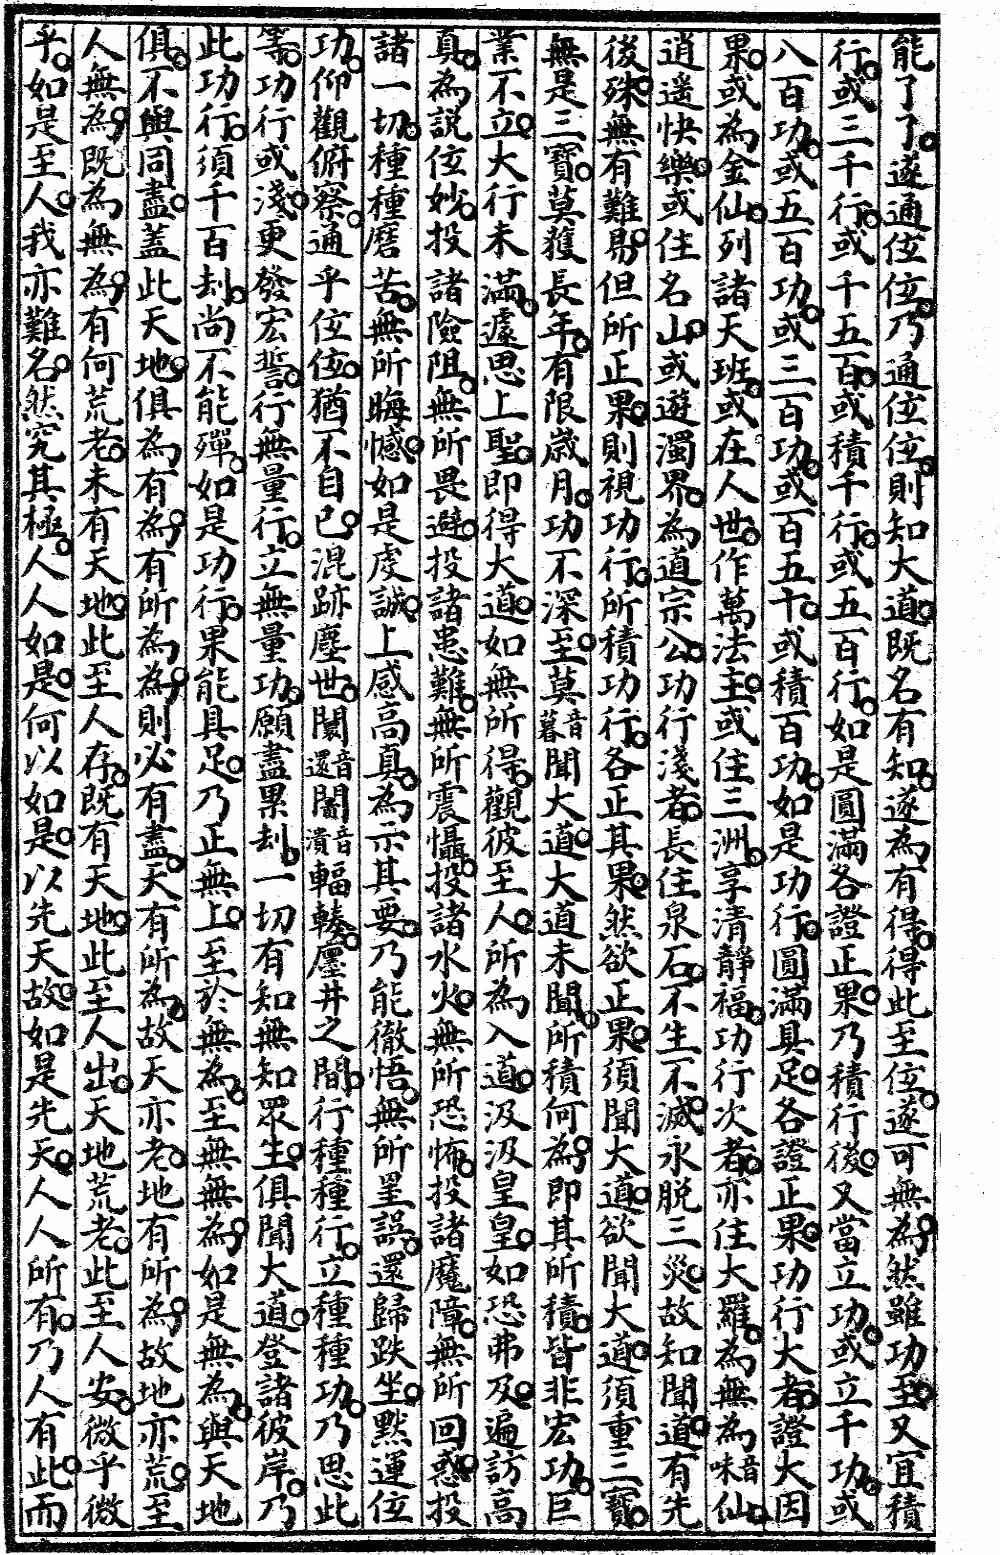 能了了遂通位位乃通位位則知大道既名有知遂為有得得此至位遂可無為然雖功至又宜積
行或三千行或千五百或積千行或五百行如是圓滿各證正果乃積行後又當立功或立千功或
八百功或五百功或三百功或百五十或積百功如是功行圓滿具足各證正果功行大者證大因
果或為金仙列諸天班或在人世作萬法主或住三洲享清靜福功行次者亦住大羅為無為味音仙
逍遥快樂或住名山或遊濁界為道宗公功行淺者長住泉石不生不滅永脫三災故知聞道有先
後殊無有難易但所正果則視功行所積功行各正其果然欲正果須聞大道欲聞大道須重三寶
無是三寶莫獲長年有限歲月功不深至莫音暮聞大道大道未聞所積何為即其所積皆非宏功巨
業不立大行未滿遽思上聖即得大道如無所得觀彼至人所為入道汲汲皇皇如恐弗及遍訪高
真為說位妙投諸險阻無所畏避投諸患難無所震懾投諸水火無所恐怖投諸魔障無所回惑投
諸一切種種磨苦無所晦憾如是虔誠上感高真為示其要乃能徹悟無所罣誤還歸趺坐默運位
功仰觀俯察通乎位位猶不自已混跡塵世闤音還闠音潰輻輳廛井之間行種種行立種種功乃思此
等功行或淺更發宏誓行無量行立無量功願盡累刦一切有知無知眾生俱聞大道登諸彼岸乃
此功行須千百刦尚不能殫如是功行果能具足乃正無上至於無為至無無為如是無為與天地
俱不與同盡蓋此天地俱為有為有所為為則必有盡天有所為故天亦老地有所為故地亦荒至
人無為既為無為有何荒老未有天地此至人存既有天地此至人出天地荒老此至人安微乎微
乎如是至人我亦難名然究其極人人如是何以如是以先天故如是先天人人所有乃人有此而